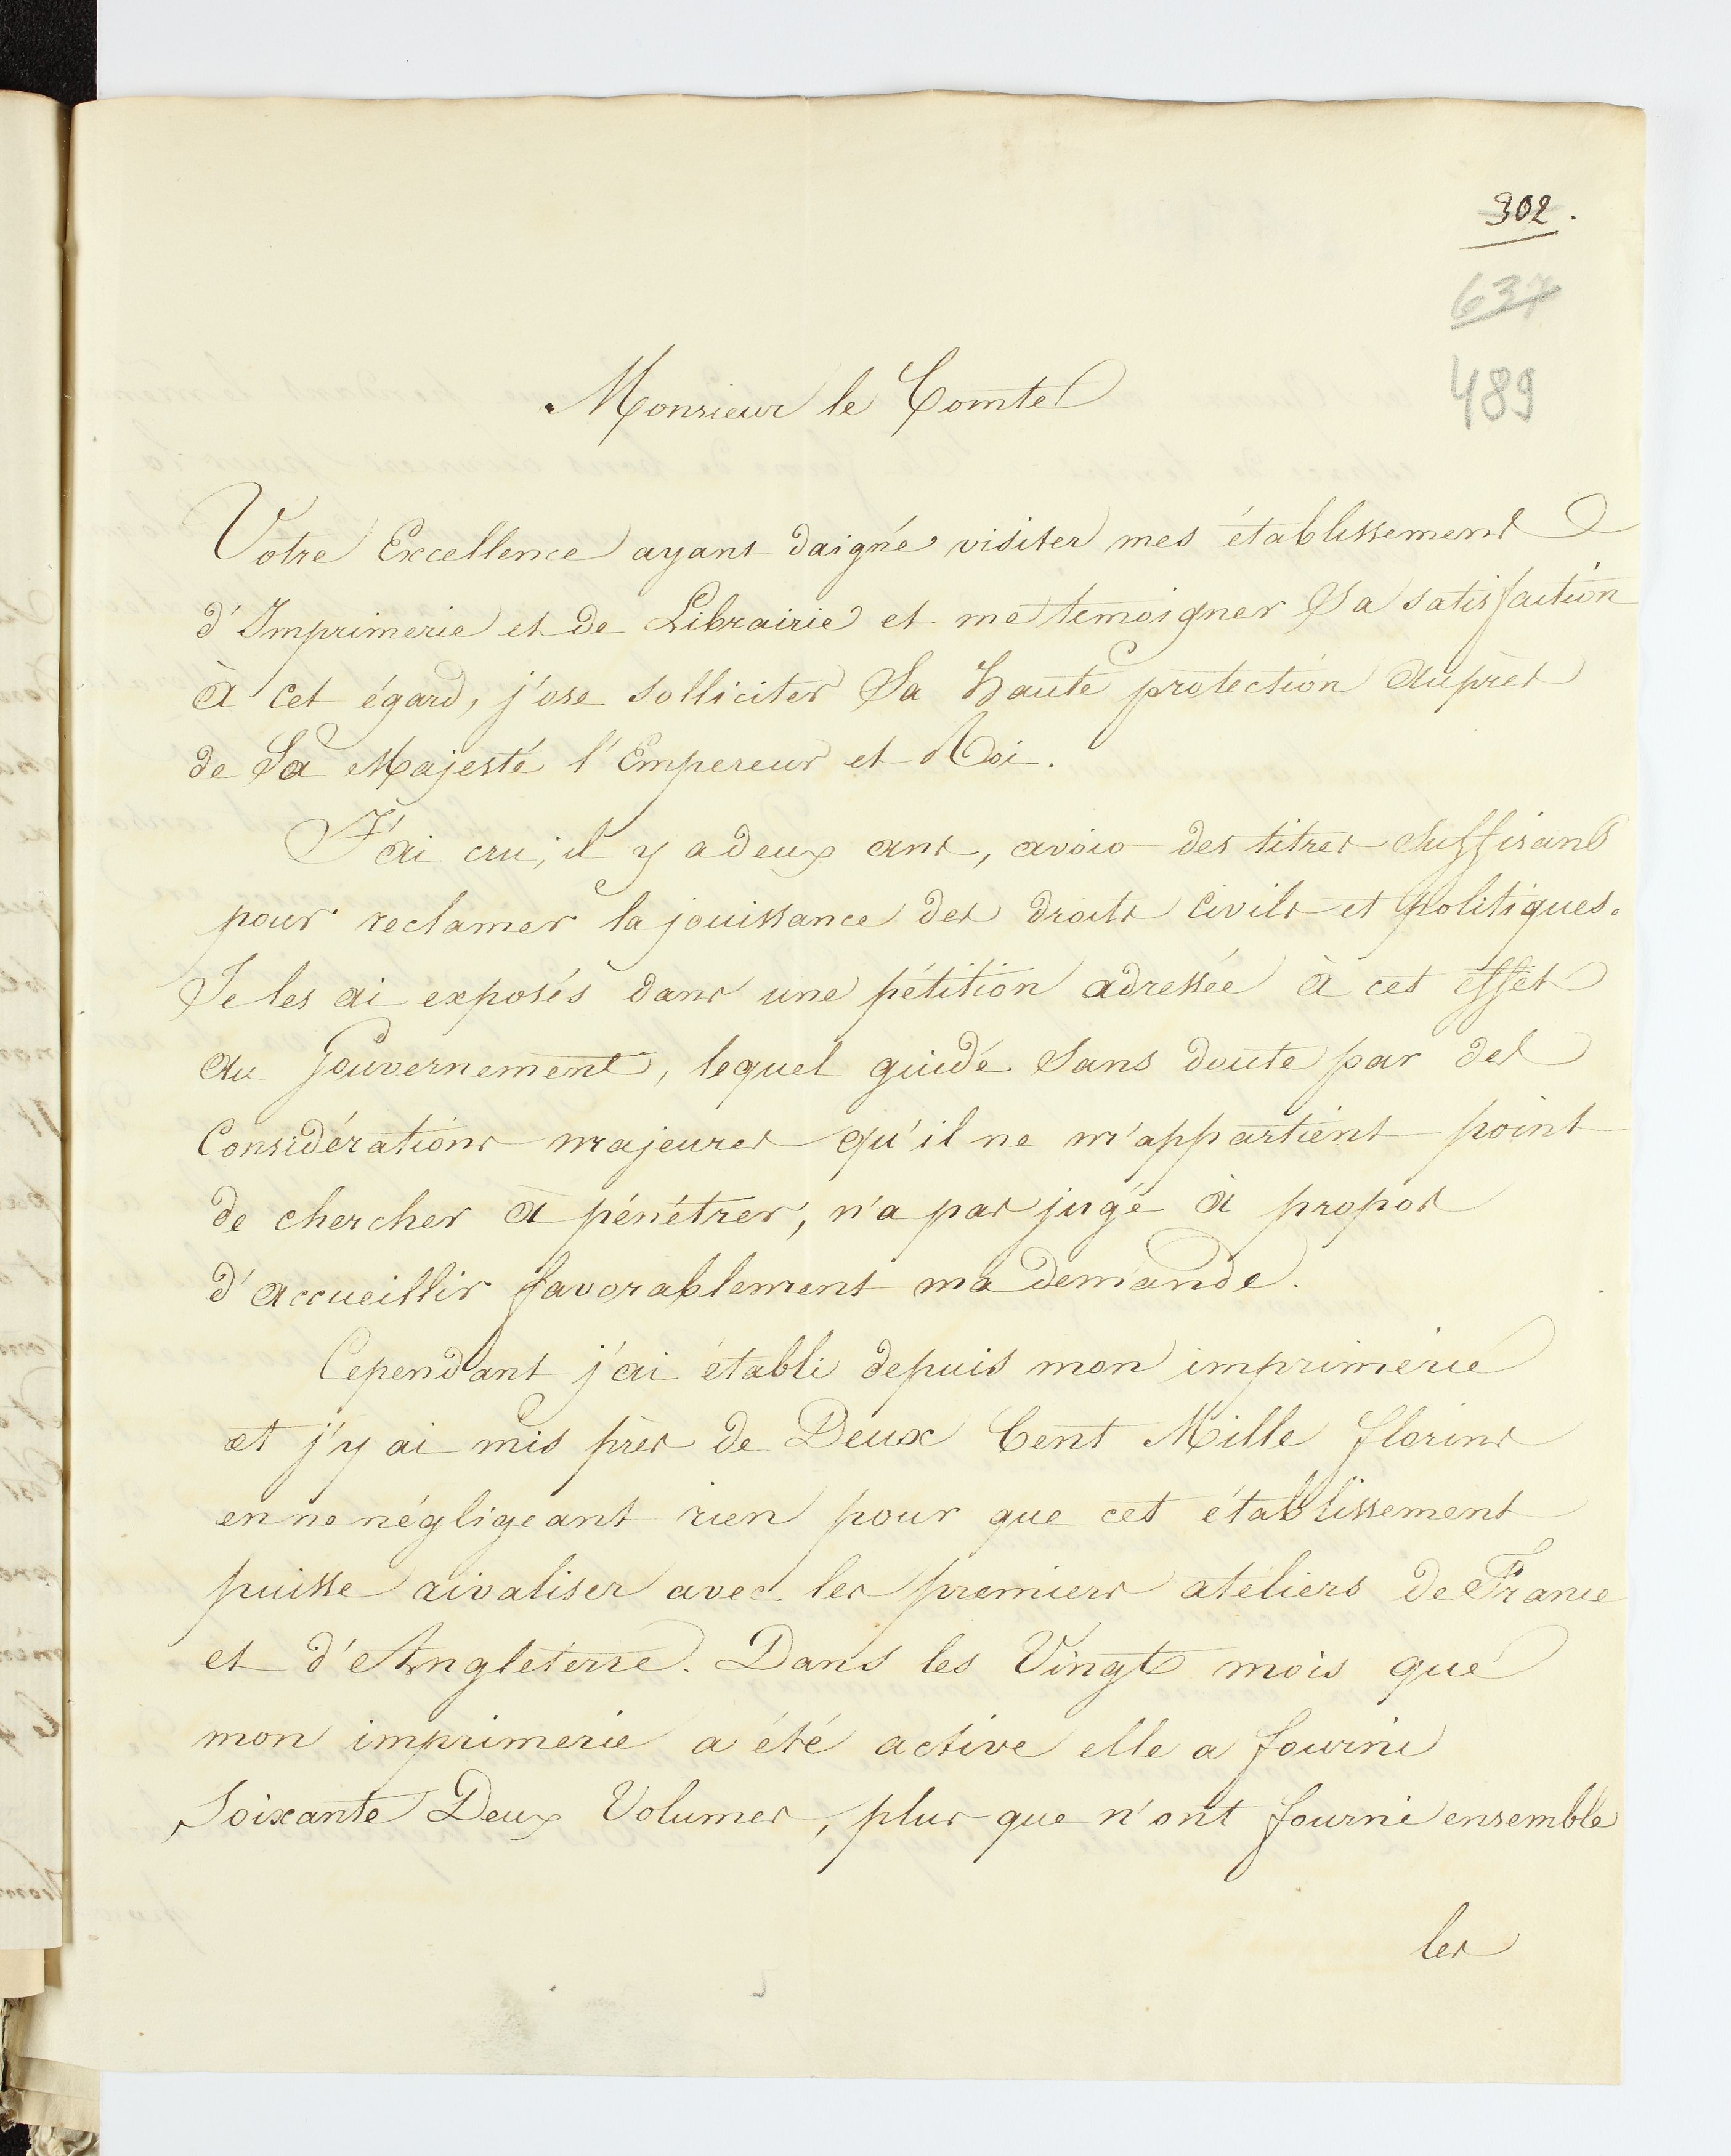 302.
637
489
Monsieur le Comte
Votre Excellence ayant daigné visiter mes établissements
d'Imprimerie et de Librairie et me temoigner Sa satisfaction
à cet égard, j'ose solliciter Sa Haute protection auprès
de Sa Majesté l'Empereur et Roi.
J'ai cru, il y a deux ans, avoir des titres suffisans
pour reclamer la jouissance des droits civils et politiques.
Je les ai exposés dans une pétition adressée à cet effet
au Gouvernement, lequel guidé sans doute par des
Considérations majeures qu'il ne m'appartient point
de chercher à pénétrer, n'a pas jugé à propos
d'accueillir favorablement ma demande.
Cependant j'ai établi depuis mon imprimerie
et j'y ai mis près de Deux Cent Mille florins
en ne négligeant rien pour que cet établissement
puisse rivaliser avec les premiers ateliers de France
et d'Angleterre. Dans les Vingt mois que
mon imprimerie a été active elle a fourni
Soixante Deux Volumes, plus que n'ont fourni ensemble
les